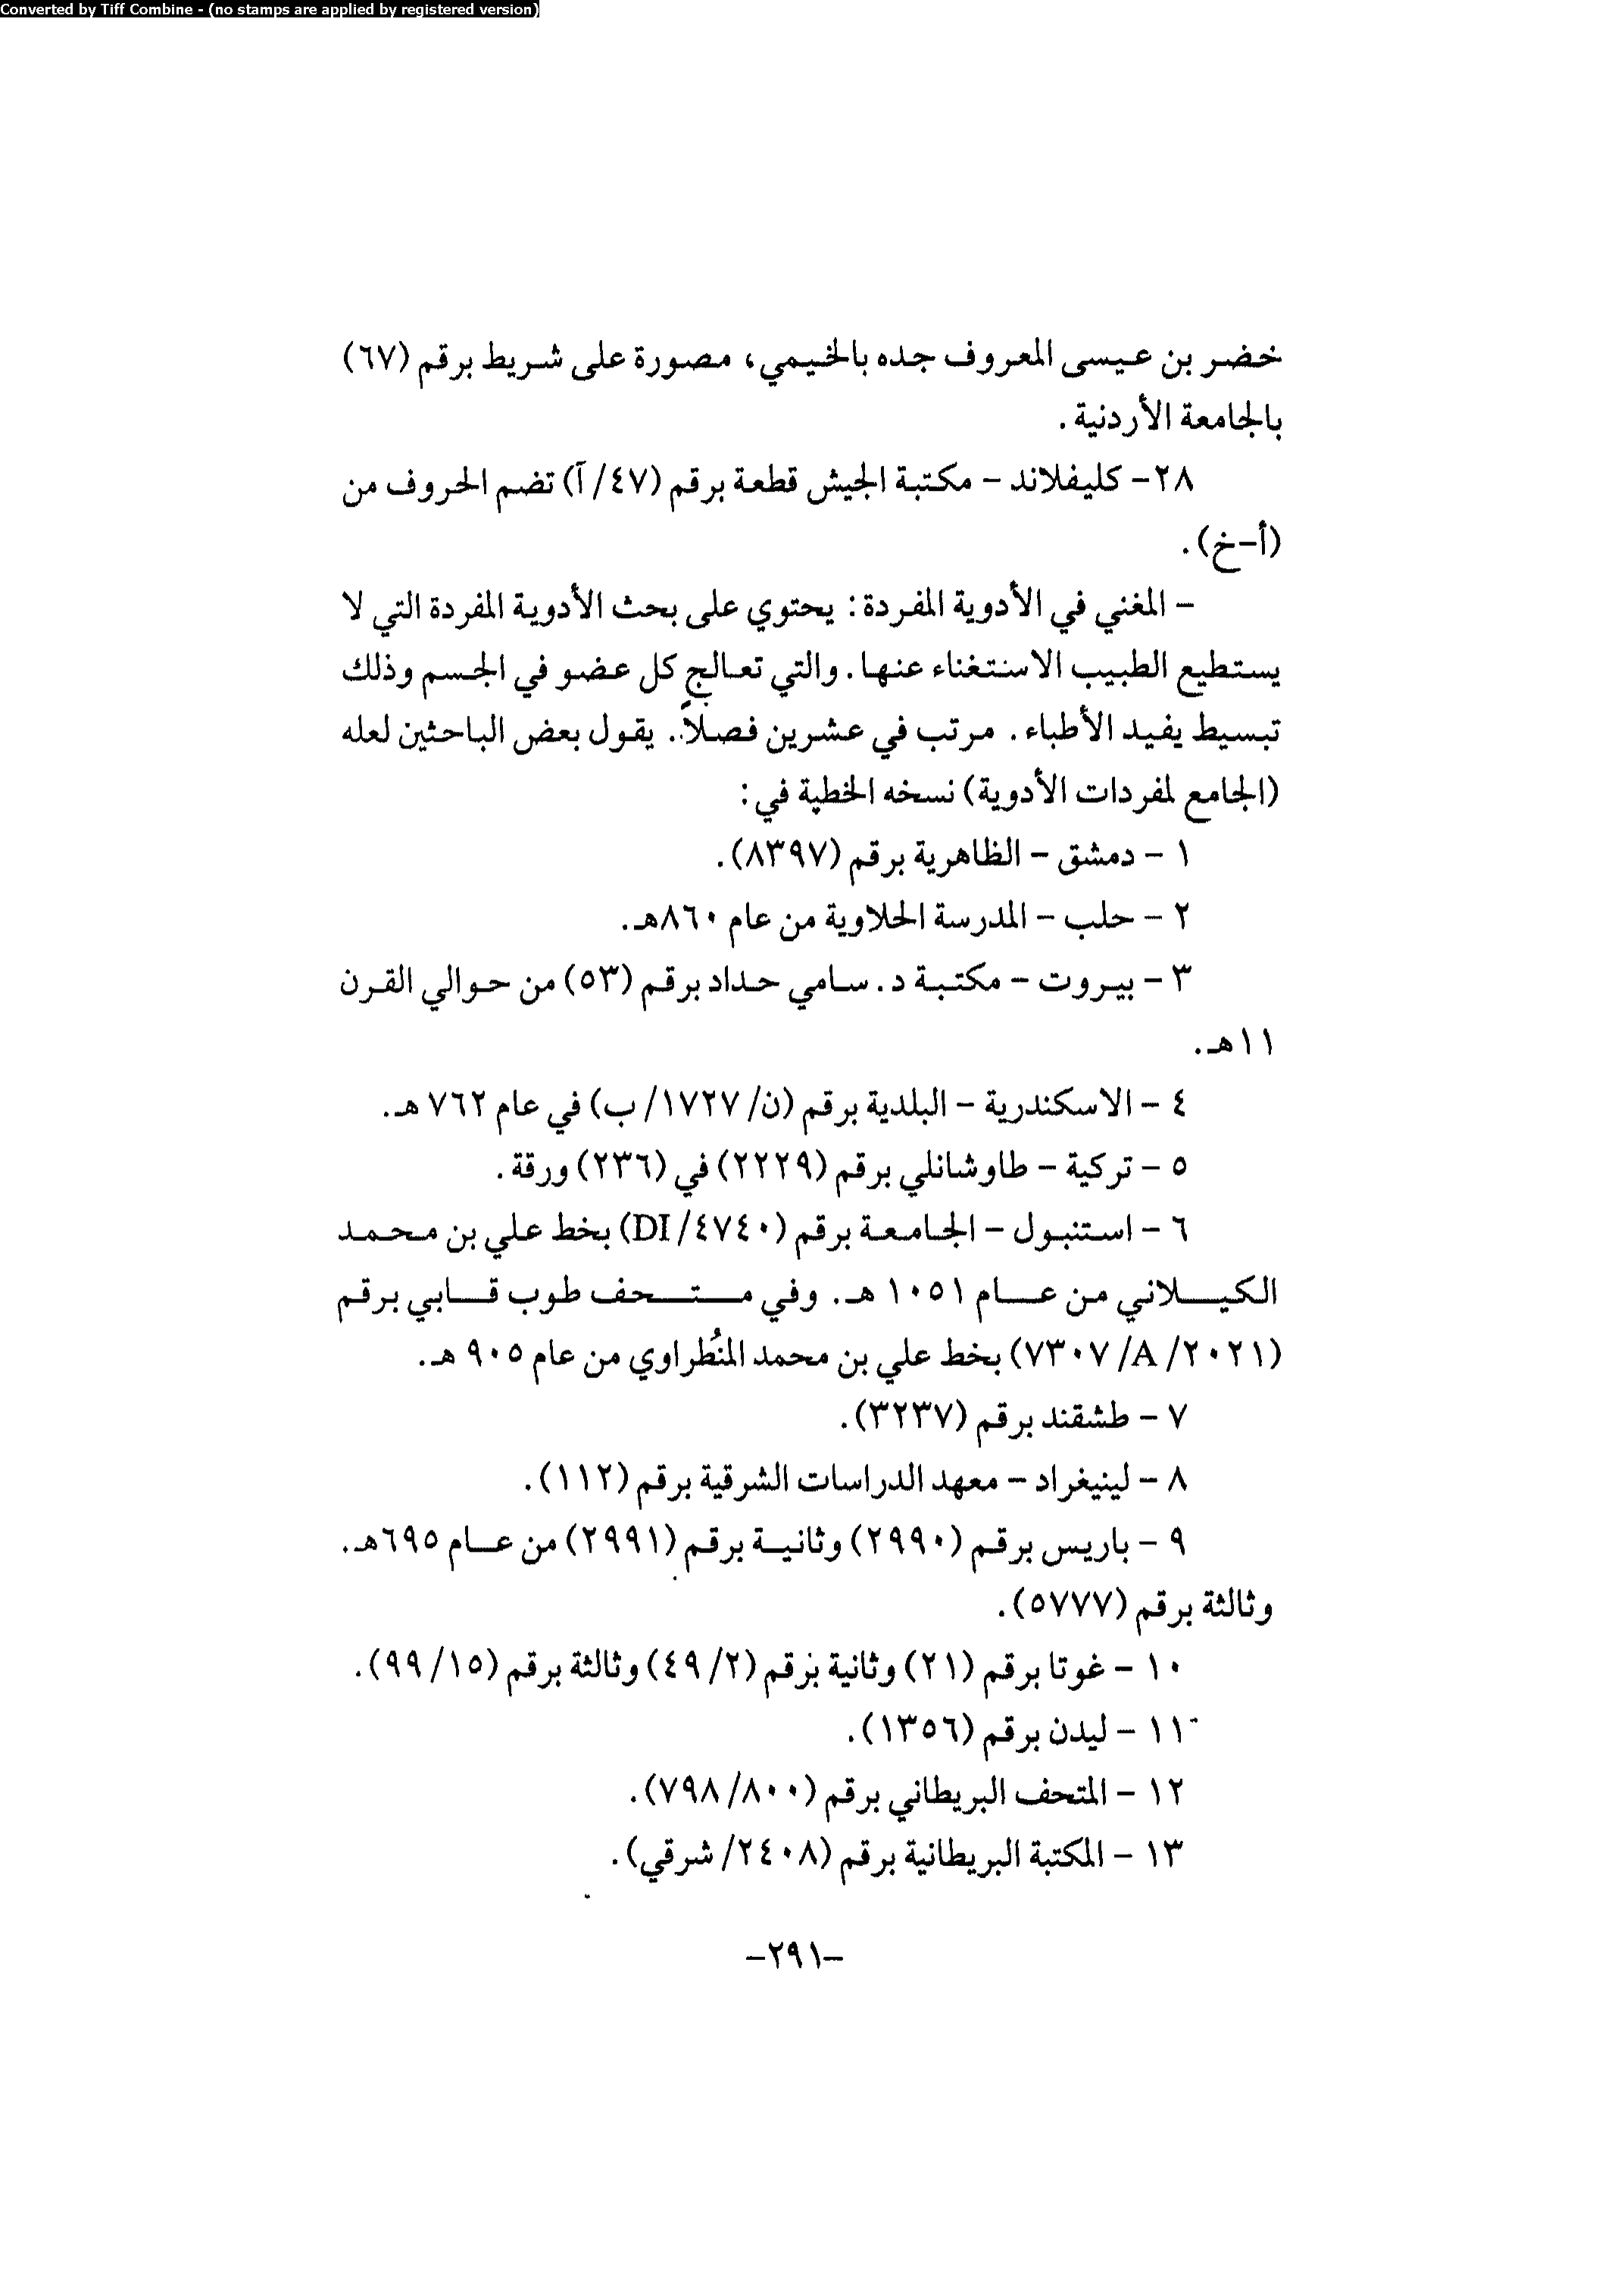 Converted by Tiff Combine - (no stamps are applied by registered version)
خضر بن عيسى المعروف جده بالخيمي، مصورة على شريط برقم (٦٧)
بالجامعة الأردنية.
٢٨- كليفلاند - مكتبة الجيش قطعة برقم (٤٧/آ) تضم الحروف من
(أ-خ).
- المغني في الأدوية المفردة: يحتوي على بحث الأدوية المفردة التي لا
يستطيع الطبيب الاستغناء عنها. والتي تعالج كل عضو في الجسم وذلك
تبسيط يفيد الأطباء. مرتب في عشرين فصلاً. يقول بعض الباحثين لعله
(الجامع لمفردات الأدوية) نسخه الخطية في:
١ - دمشق - الظاهرية برقم (٨٣٩٧).
٢ - حلب - المدرسة الحلاوية من عام ٨٦٠هـ.
٣ - بيروت - مكتبة د. سامي حداد برقم (٥٣) من حوالي القرن
١١هـ.
٤ - الاسكندرية - البلدية برقم (ن/ ١٧٢٧/ ب) في عام ٧٦٢ هـ.
٥ - تركية - طاوشانلي برقم (٢٢٢٩) في (٢٣٦) ورقة.
٦ - استنبول - الجامعة برقم (DI/٤٧٤٠) بخط علي بن محمد
الكيلاني من عام ١٠٥١ هـ. وفي متحف طوب قابي برقم
(٧٣٠٧/A/٢٠٢١) بخط علي بن محمد المنُطراوي من عام ٩٠٥ هـ.
٧ - طشقند برقم (٣٢٣٧).
٨ - لينيغراد - معهد الدراسات الشرقية برقم (١١٢).
٩ - باريس برقم (٢٩٩٠) وثانية برقم (٢٩٩١) من عام ٦٩٥هـ.
وثالثة برقم (٥٧٧٧).
١٠ - غوتا برقم (٢١) وثانية برقم (٤٩/٢) وثالثة برقم (٩٩/١٥).
١١ - ليدن برقم (١٣٥٦).
١٢ - المتحف البريطاني برقم (٧٩٨/٨٠٠).
١٣ - المكتبة البريطانية برقم (٢٤٠٨/ شرقي).
-٢٩١-